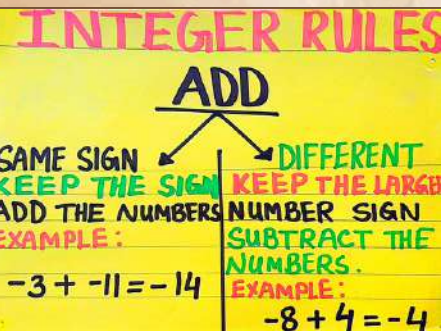 INTEGER RULES
ADD
SAME SIGN
KEEP THE SIGN
ADD THE NUMBERS
EXAMPLE:
-3 + -11 = -14
DIFFERENT
KEEP THE LARGER
NUMBER SIGN
SUBTRACT THE
NUMBERS.
EXAMPLE:
-8 + 4 = -4